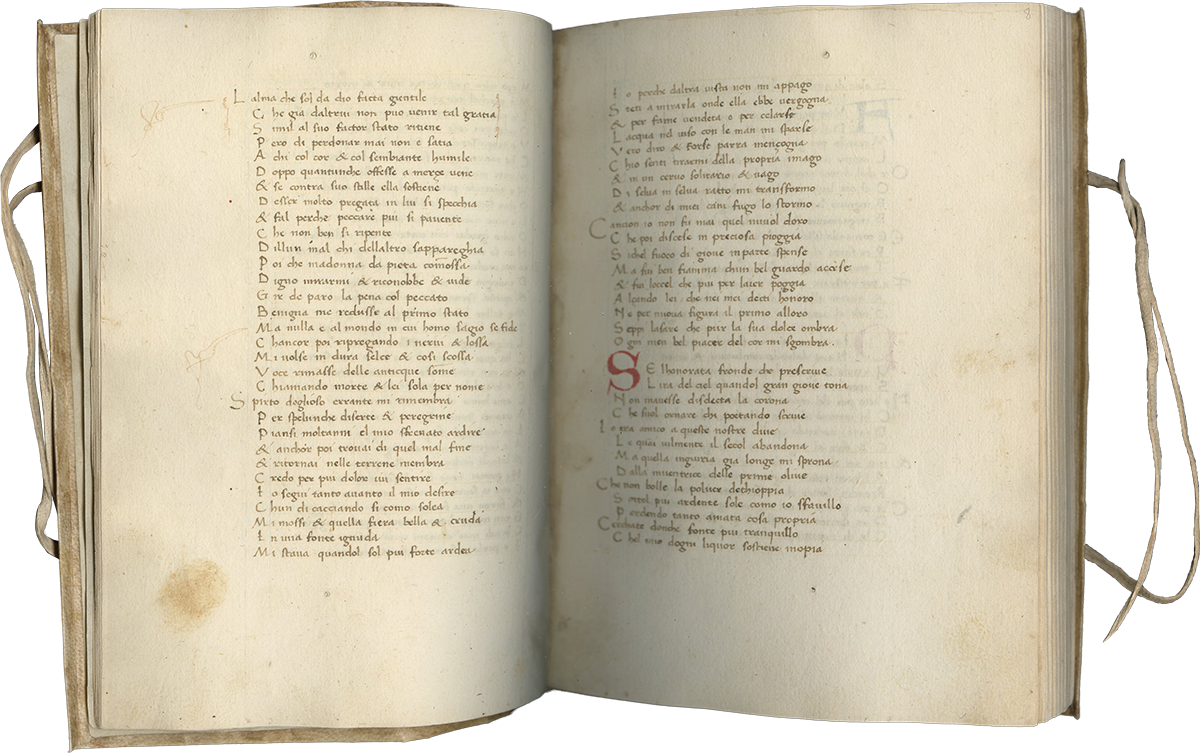 L alma che sol da dio facta gentile
C he gia daltrui non può venir tal gratia
S imil al suo factor stato ritiene
P ero di perdonar mai non e satia
A chi col cor & col sembiante humile
D oppo quantunche offese a merçe vene
& se contra suo stille ella sostiene
D esser molto pregata in lui si specchia
& fal perche peccare piu si pavente
C he non ben si ripente
D illun mal chi dellaltro sappareghia
P oi che madonna da pieta comossa
D igno mirarmi & riconobbe & uide
G ir de paro la pena col peccato
B enigna me redusse al primo stato
M a nulla e al mondo in cui homo sagio se fide
C hancor poi ripregando i nervi & lossa
M i volse in dura selce & cosi scossa
V oce rimasse delle anticque some
C hiamando morte & lei sola per nome
S pirto doglioso errante mi rimembra
P er spelunche diserte & peregrine
P iansi moltanni el mio sfrenato ardire
& anchor poi trouai di quel mal fine
& ritornai nelle terrene membra
C redo per piu dolor iui sentire
I o segui tanto auanto il mio desire
C hun di cacciando si como solea
M i mossi & quella fiera bella & cruda
I n una fonte ignuda
M i staua quandol sol piu forte ardea
8
I o perche daltra vista non mi appago
S teti a mirarla onde ella ebbe vergogna
& per farne vendeta o per celarse
L acqua nel uiso con le man mi sparse
V ero diro & forse parra mençogna
C hio senti trarmi della propria imago
& in un cervo solitario & uago
D i selua in selua ratto mi transformo
& anchor di miei cani fugo lo stormo
C ancion io non fu mai quel nuuol doro
C he poi discese in preciosa pioggia
S ichel fuoco di gioue inparte spense
M a fui ben fiamma chun bel guardo accese
& fui loccel che piu per laier poggia
A lçando lei che nei mei decti honoro
N e per nuoua figura il primo alloro
S eppi lasare che pur la sua dolce ombra
O gni men bel piacer del cor mi sgombra
S E lhonorata fronde che prescriue
L ira del ciel quandol gran gioue tona
N on mauesse disdecta la corona
C he suol ornare chi poetando scriue
I o era amico a queste nostre diue
L e quai uilmente il secol abandona
M a quella ingiuria gia longe mi sprona
D alla inuentrice delle prime oliue
C he non bolle la poluer dethioppia
S ottol piu ardente sole como io sfauillo
P erdendo tanto amata cosa propria
C erchate donche fonte piu tranquillo
C hel mio dogni liquor sostiene inopia